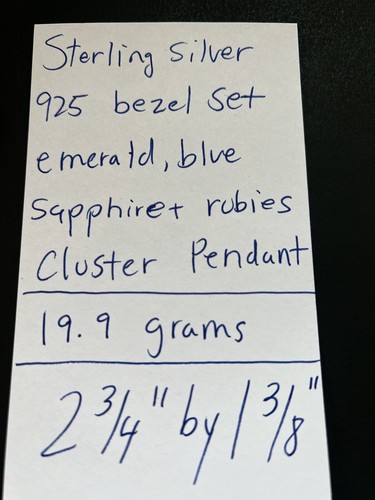 Sterling Silver
925 bezel Set
emerald, blue
Sapphire + rubies
Cluster Pendant
19.9 grams
2 3/4" by 1 3/8"